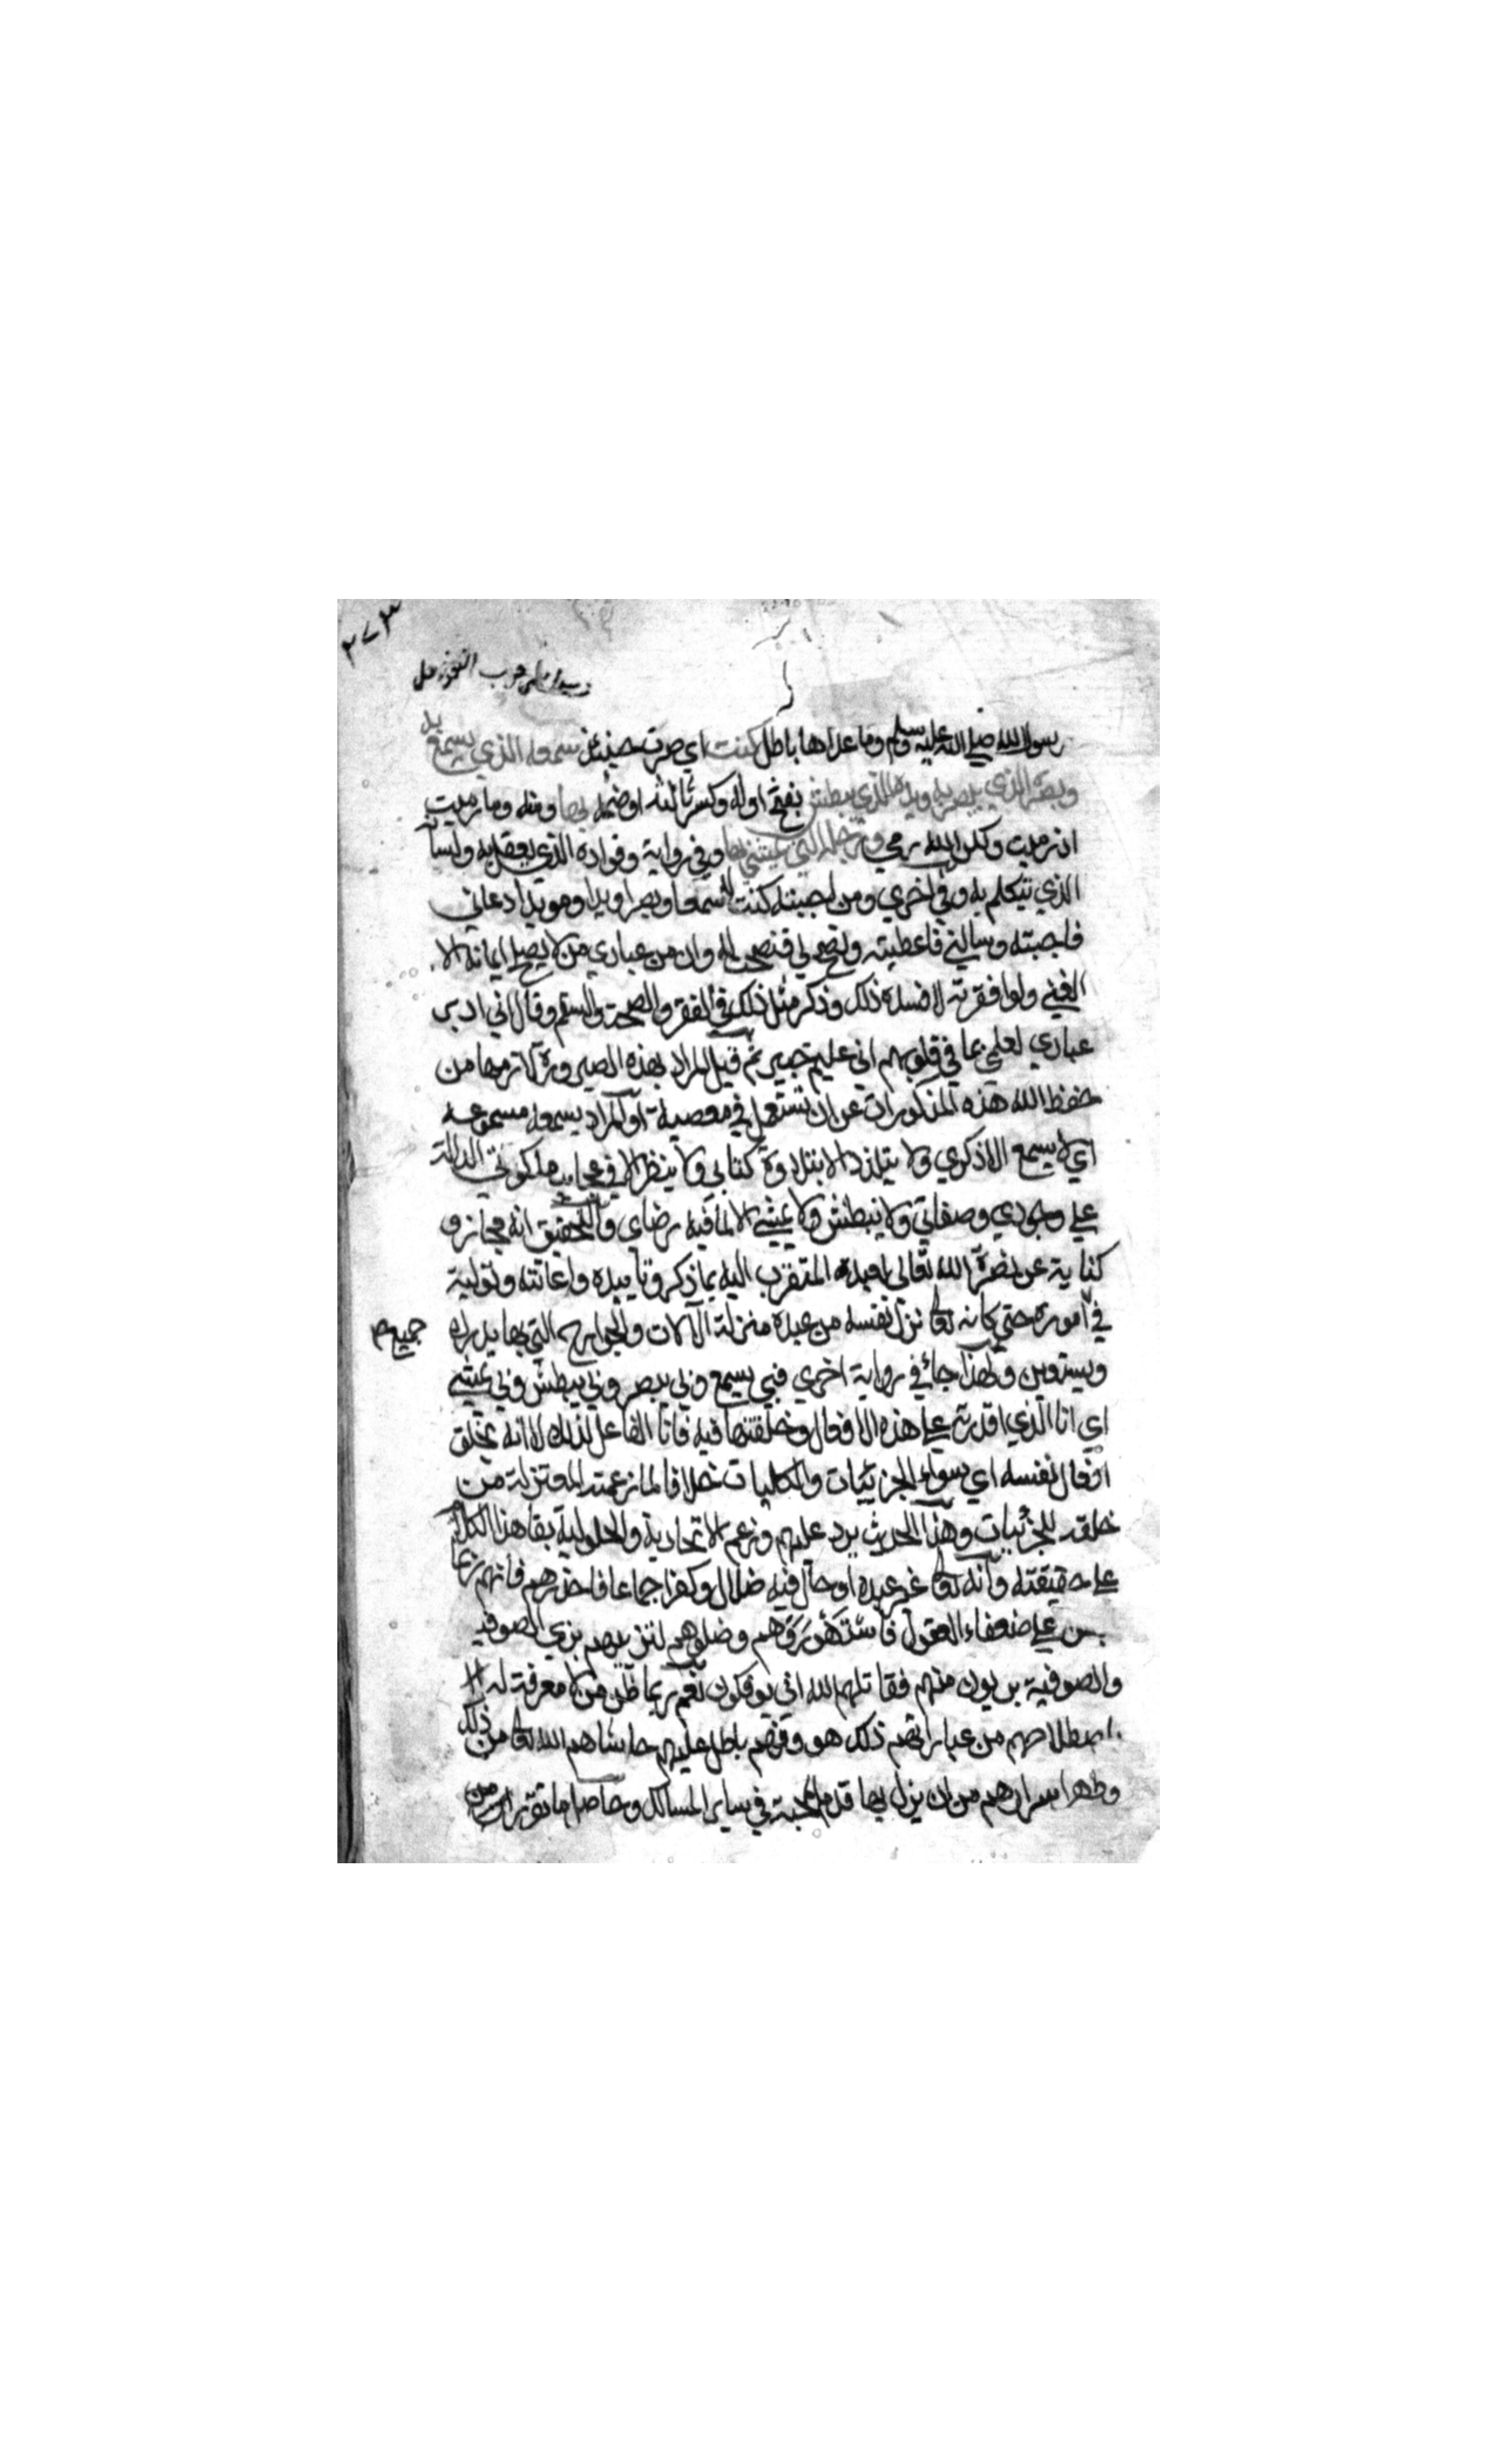 ٢٧٣
رسول الله صلي الله عليه وسلم وما عداها باطل كنت اي صرت حينئذ سمعه الذي يسمع به
وبصره الذي يبصر به ويده الذي يبطش بفتح اوله وكسر ثالثه اوضمه بها ومنه وما رميت
اذ رميت ولكن الله رمي ورجله التي يمشي بها وفي رواية وفواده الذي يعقل به ولسانه
الذي يتكلم به وفي اخري ومن احببته كنت له سمعا وبصرا ويدا ومويدا دعاني
فاجبته وسالني فاعطيته ونصح لي فنصحت له وان من عبادي من لا يصلح ايمانه الا
الغني ولو افقرته لافسده ذلك وذكر مثل ذلك في الفقر والصحة والسقم وقال اني ادبر
عبادي لعلمي بما في قلوبهم اني عليم خبير ثم قيل المراد بهذه الصيرورة لازمها من
حفظ الله هذه المذكورات عن ان تستعمل في معصية او المراد بسمعه مسموعه
اي لا يسمع الا ذكري ولا يتلذذ الا بتلاوة كتابي ولا ينظر الا في عجايب ملكوتي الدالة
علي وجودي وصفاتي ولا يبطش ولا يمشي الا لما فيه رضاي والتحقيق انه مجاز و
كناية عن نصرة الله تعالي لعبده المتقرب اليه بما ذكر وتاييده واعانته وتوليه
في اموره حتي كانه تعا نزل نفسه من عبده منزلة الالات والجوارح التي بها يدرك
جميع
ويستعين ولهذا جاء في رواية اخري فبي يسمع وبي يبصر وبي يبطش وبي يمشي
اي انا الذي اقدرته علي هذه الافعال وخلقتها فيه فانا الفاعل لذلك لا انه يخلق
افعال نفسه اي سواء الجزئيات والكليات خلافا لما زعمته المعتزلة من
خلقه للجزئيات وهذا الحديث يرد عليهم وزعم الاتحادية والحلولية بقا هذا الكلام
علي حقيقته وانه تعا غير عبده او حال فيه ضلال وكفر اجماعا فاحذرهم فانهم ربما
علي ضعفاء العقول وضلوهم لتزييهم بزي الصوفية
والصوفية بريون منهم فقاتلهم الله اني يوفكون نعم ربما ظن من لا معرفة له
باصطلاحهم من عباراتهم ذلك هو وفهم باطل عليهم حاشاهم الله تعا من ذلك
وطهر اسرارهم من ان يزل بها قدم المحبة في ساير المسالك وحاصل ما تقرر